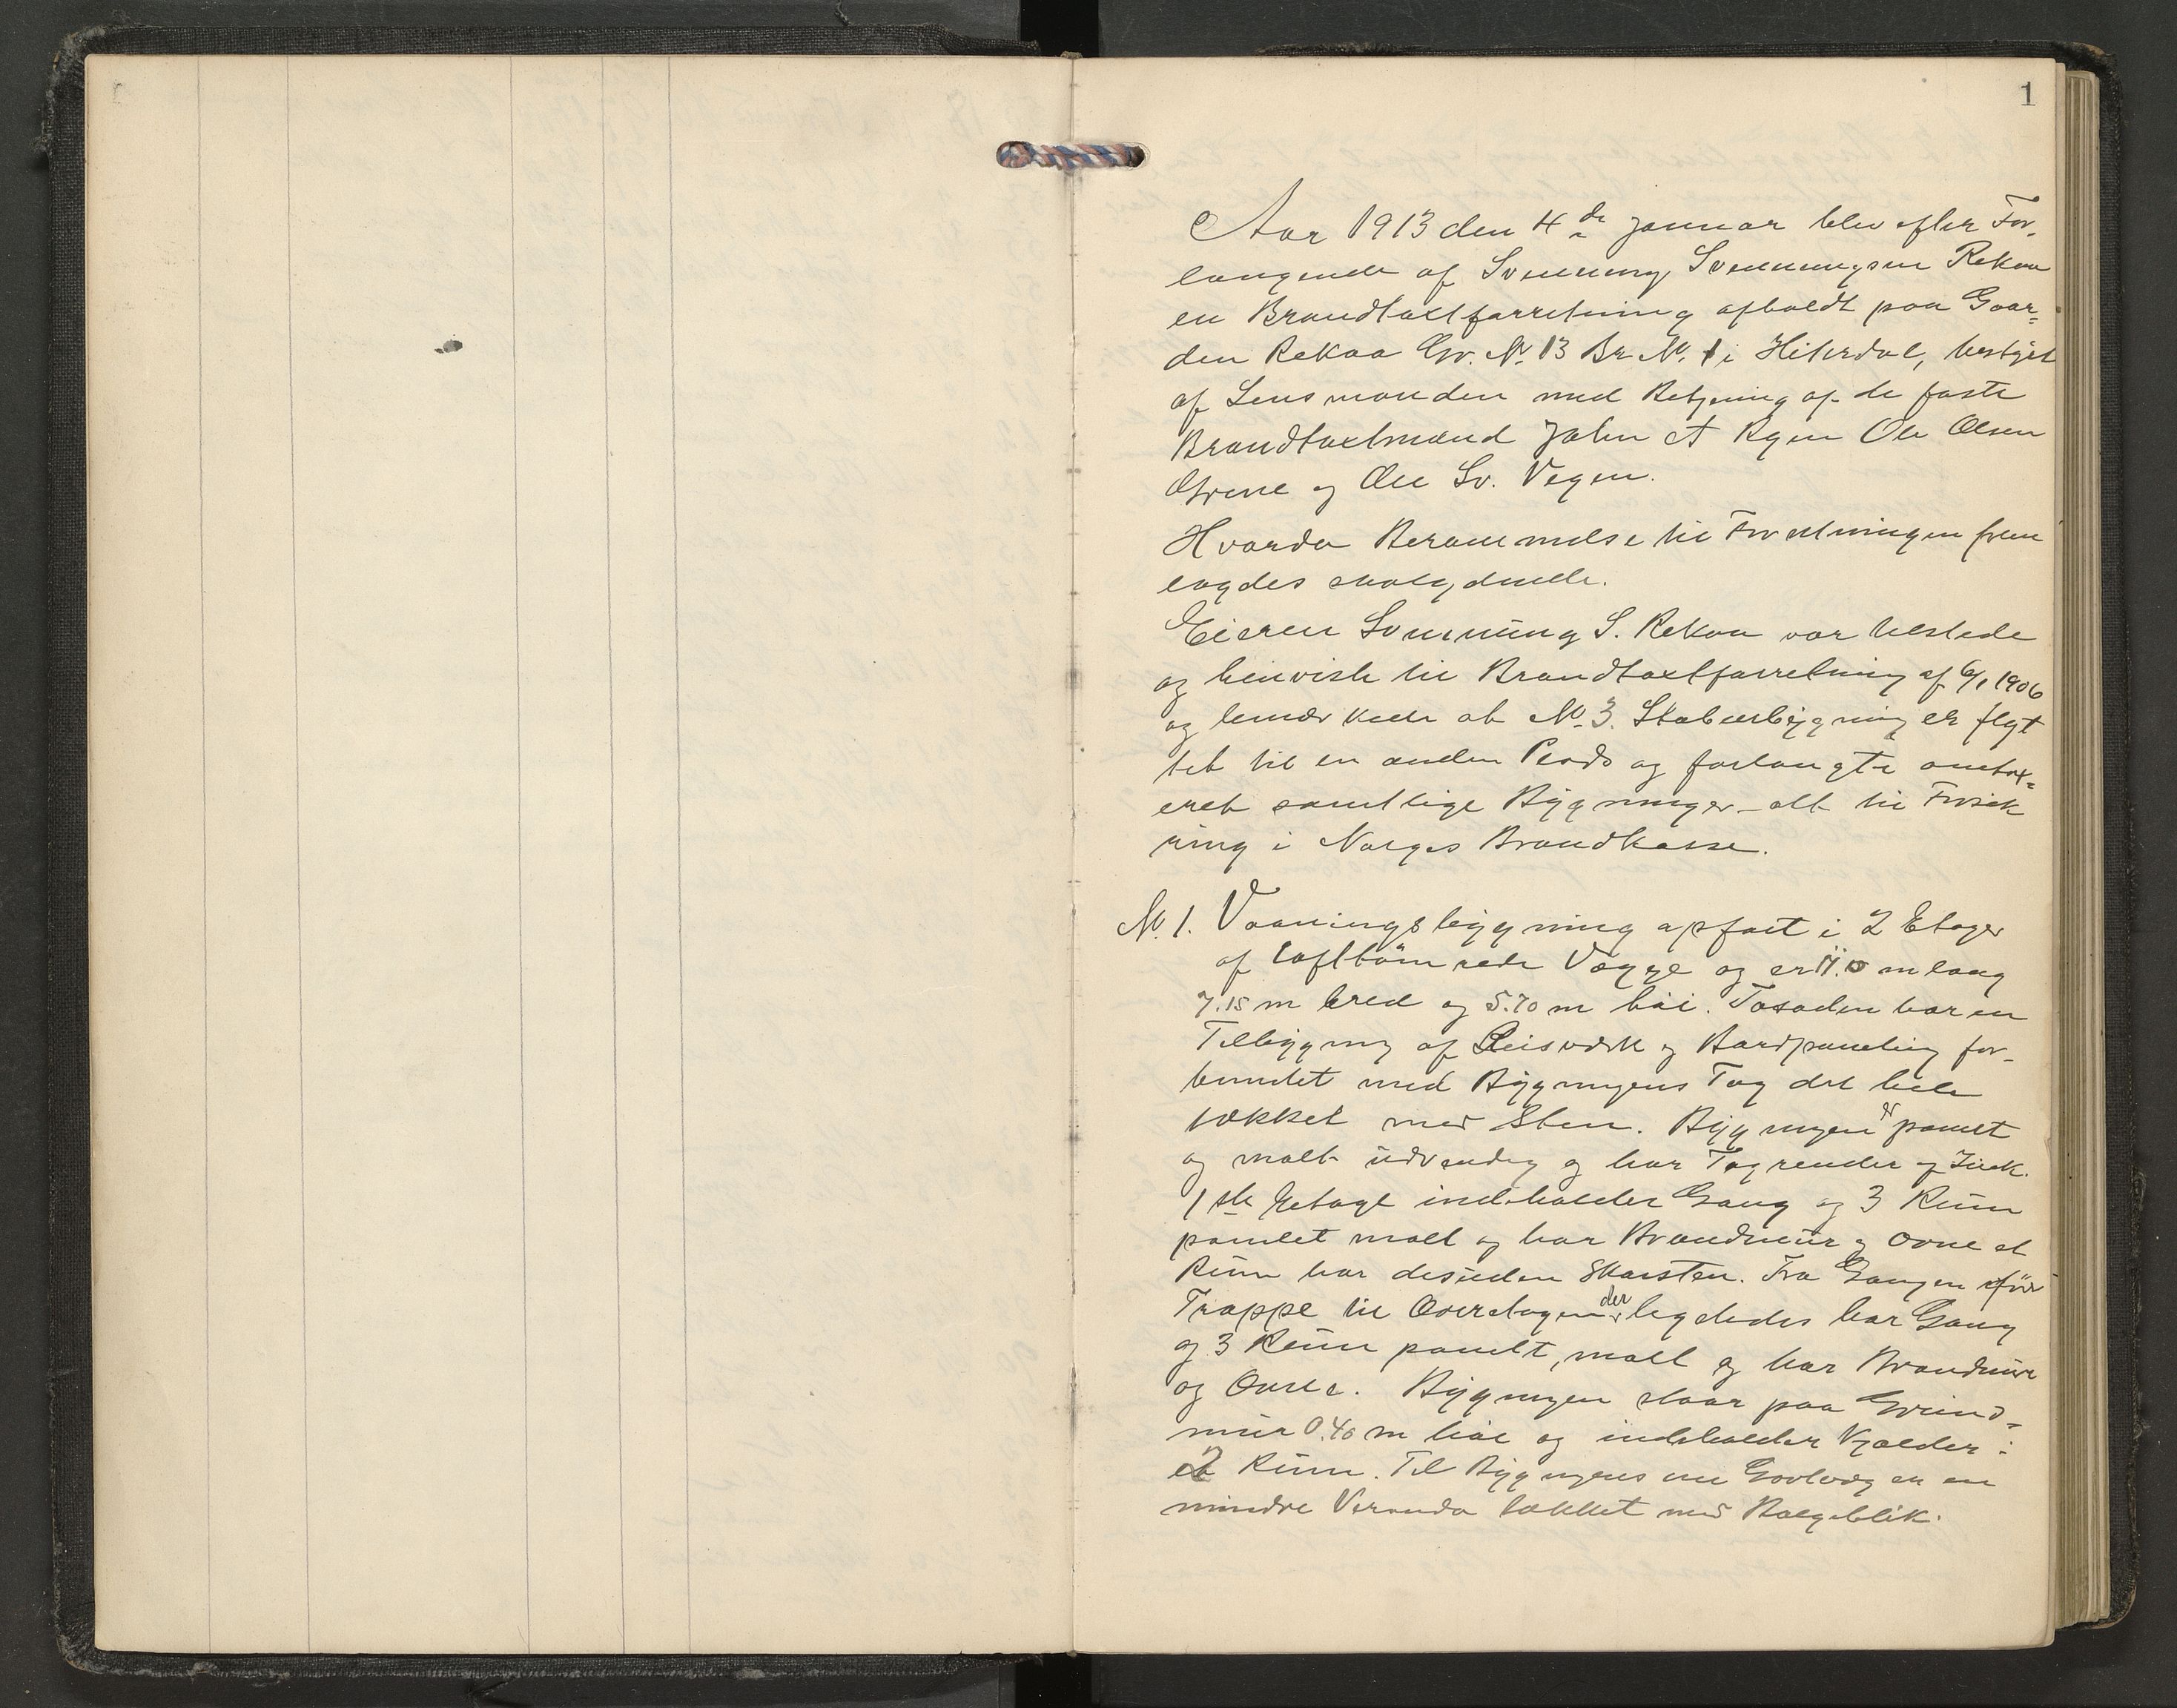 1
Aar 1913 den 4de Januar blev efter For-
langende af Svenning Svenningsen Rekaa
en Brandtaxtforretning afholdt paa Gaar=
den Rekaa Gr. No 13 Br No. 1 i Hiterdal, bestyret
af Lensmanden med Betjening af de faste
Brandtaxtmænd John A Ryen Ole Olsen
Grene og Ole Sv. Vegen.
Hvorda Berammelse til Forretningen frem
lagdes saalydende.
Eieren Svenning S. Rekaa var tilstede
og henviste til Brandtaxtforretning af 6/1 1906
og bemærkede at No 3. Stabursbygning er flyt
tet til en anden Plads og forlangte omtax=
eret samtlige Bygninger - alt til Forsik
ring i Norges Brandkasse.
No. 1. Vaaningsbygning opført i 2 Etager
af lafttømrede Vægge og er 11.0 m lang
7.15 m bred og 5.70 m høi. Fasaden har en
Tilbygning af Reisværk og Bordpaneling for-
bundet med Bygningens Tag det hele
tækket med Sten. Bygningen er panelt
og malt udvendig og har Tagrender af Zink.
1ste Etage indeholder Gang og 3 Rum
panelet malt og har Brandmur og Ovne et
Rum har desuden Skorsten. Fra Gangen fører
Trappe til Overetagen der ligeledes har Gang
og 3 Rum panelt, malt og har Brandmure
og Ovne. Bygningen staar paa Grund=
mur 0.40 m høi og indeholder Kjælder i
2 Rum. Til Bygningens ene Gavlvæg er en
mindre Veranda tækket med Bølgeblik.